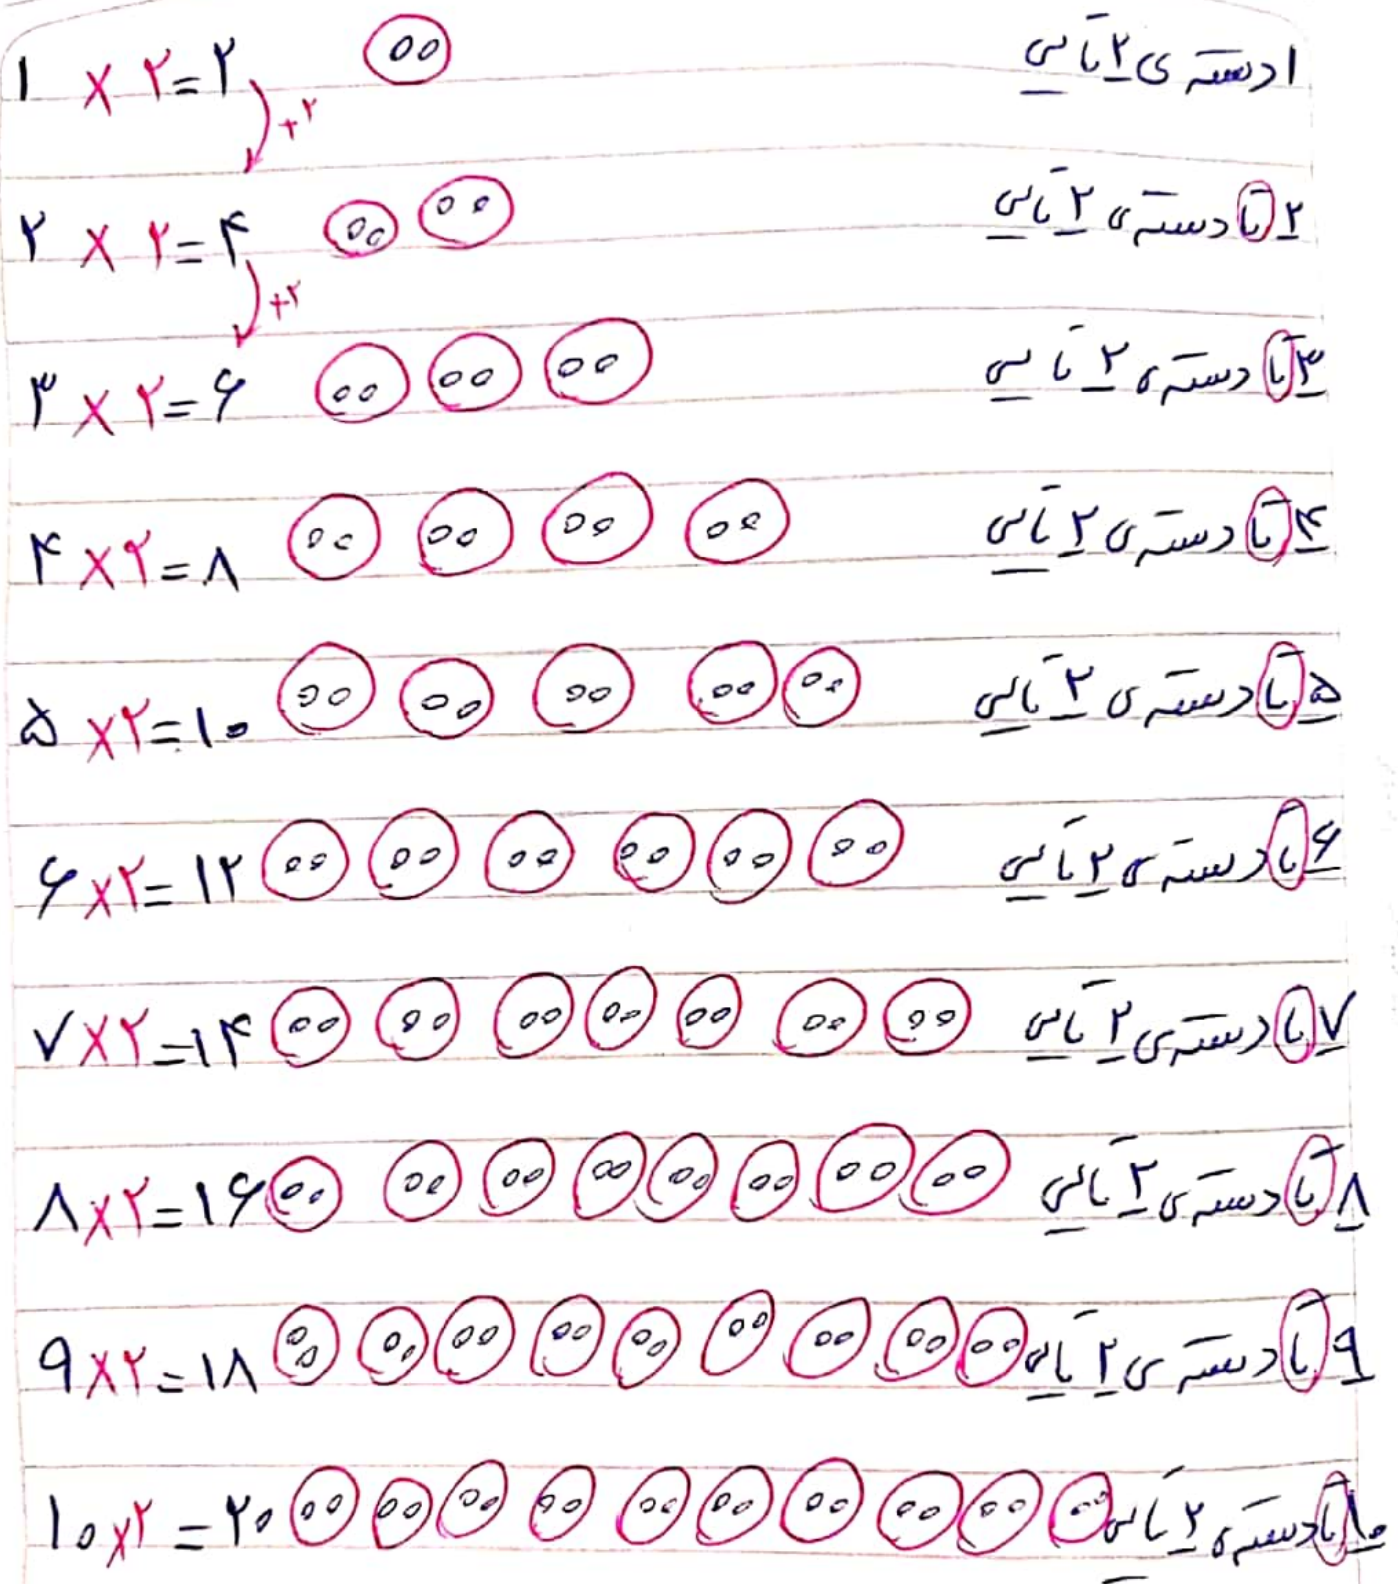 ۱ دسته ی ۲ تایی ۱ × ۲ = ۲
+۲
۲ تا دسته ی ۲ تایی ۲ × ۲ = ۴
+۲
۳ تا دسته ی ۲ تایی ۳ × ۲ = ۶
۴ تا دسته ی ۲ تایی ۴ × ۲ = ۸
۵ تا دسته ی ۲ تایی ۵ × ۲ = ۱۰
۶ تا دسته ی ۲ تایی ۶ × ۲ = ۱۲
۷ تا دسته ی ۲ تایی ۷ × ۲ = ۱۴
۸ تا دسته ی ۲ تایی ۸ × ۲ = ۱۶
۹ تا دسته ی ۲ تایی ۹ × ۲ = ۱۸
۱۰ تا دسته ی ۲ تایی ۱۰ × ۲ = ۲۰